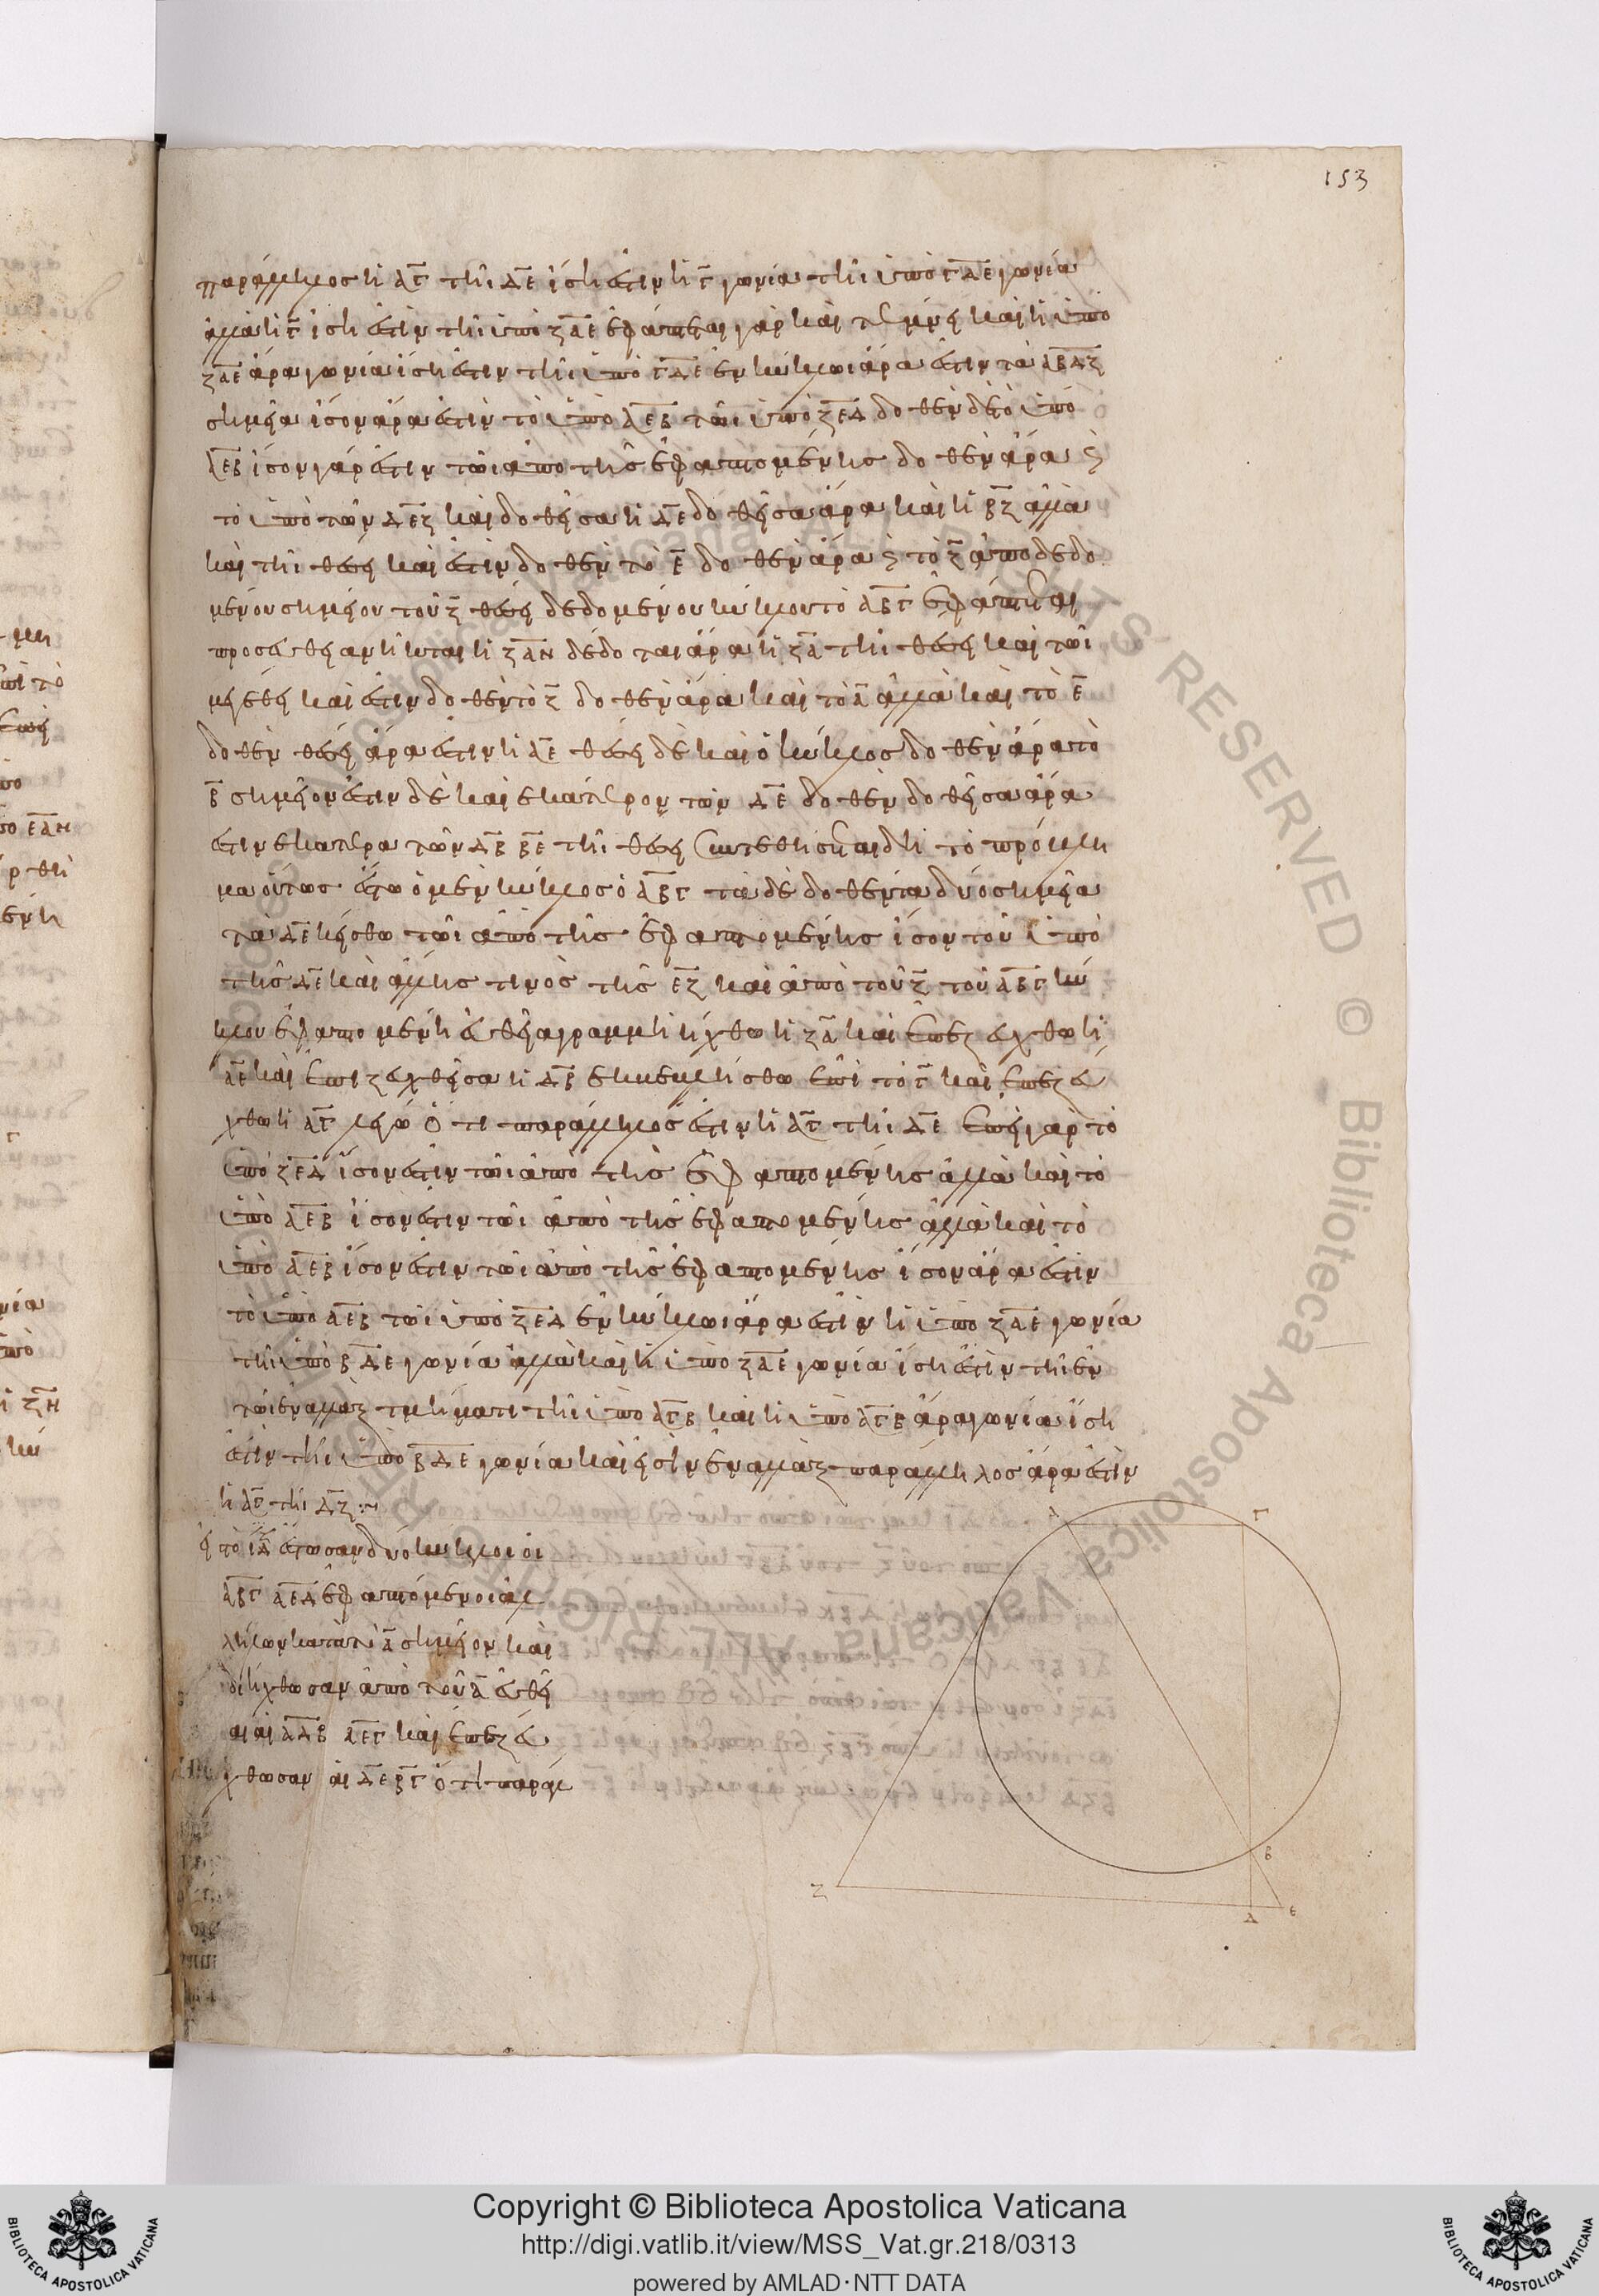 153
παράλληλος ἡ ΑΓ τῆι ΔΕ ἴση ἐστὶν ἡ Γ γωνία τῆι ὑπὸ ΓΔΕ γωνία
ἀλλὰ ἡ Γ ἴση ἐστὶν τῆι ὑπὸ ΖΑΕ ἐφάπτεται γὰρ καὶ τέμνει καὶ ἡ ὑπὸ
ΖΑΕ ἄρα γωνία ἴση ἐστὶν τῆι ὑπὸ ΓΔΕ ἐν κύκλωι ἄρα ἐστὶν τὰ ΑΒΔΖ
σημεῖα ἴσον ἄρα ἐστὶν τὸ ὑπὸ ΑΕΒ τῶι ὑπὸ ΖΕΔ δοθὲν δὲ τὸ ὑπὸ
ΑΕΒ ἴσον γάρ ἐστιν τῶι ἀπὸ τῆς ἐφαπτομένης δοθὲν ἄρα ϗ
τὸ ὑπὸ τῶν ΔΕΖ καὶ δοθεῖσα ἡ ΔΕ δοθεῖσα ἄρα καὶ ἡ ΒΖ ἀλλὰ
καὶ τῆι θέσει καὶ ἐστὶν δοθὲν τὸ Ε δοθὲν ἄρα ϗ τὸ Ζ ἀπὸ δεδο
μένου σημείου τοῦ Ζ θέσει δεδομένου κύκλου τὸ ΑΒΓ ἐφάπτεται
προσευθεῖαν ἡ ἡ ΖΑΝ δέδοται ἄρα ἡ ΖΑ τῆι θέσει καὶ τῶι
μεγέθει καὶ ἐστιν δοθὲν τὸ Ζ δοθὲν ἄρα καὶ τὸ Α ἀλλὰ καὶ τὸ Ε
δοθὲν θέσει ἄρα ἐστὶν ἡ ΑΕ θέσει δὲ καὶ ὁ κύκλος δοθὲν ἄρα τὸ
Β σημεῖον ἐστιν δὲ καὶ ἑκάτερον τῶν ΔΕ δοθὲν δοθεῖσα ἄρα
ἐστὶν ἑκατέρα τῶν ΔΒ ΒΕ τῆι θέσει συντεθήσεται δὴ τὸ πρόβλη
μα οὕτως ἔστω ὁ μὲν κύκλος ὁ ΑΒΓ τὰ δὲ δοθέντα δύο σημεῖα
τὰ ΔΕ κείσθω τῶι ἀπὸ τῆς ἐφαπτομένης ἴσον τοῦ ὑπὸ
τῆς ΔΕ καὶ ἄλλης τινὸς τῆς ΕΖ καὶ ἀπὸ τοῦ Ζ τοῦ ΑΒΓ κύ
κλου ἐφαπομένη εὐθεῖα γραμμὴ ἤχθω ἡ ΖΑ καὶ ἐπεζεύχθω ἡ
ΑΕ καὶ ἐπιζευχθεῖσα ἡ ΔΒ ἐκβεβλήσθω ἐπὶ τὸ Γ καὶ ἐπεζεύ
χθω ἡ ΑΓ λέγω ὅτι παράλληλός ἐστιν ἡ ΑΓ τῆι ΔΕ ἐπεὶ γὰρ τὸ
ὑπὸ ΖΕΔ ἴσον ἐστὶν τῶι ἀπὸ τῆς ἐφαπτομένης ἀλλὰ καὶ τὸ
ὑπὸ ΑΕΒ ἴσον ἐστὶν τῶι ἀπὸ τῆς ἐφαπτομένης ἀλλὰ καὶ τὸ
ὑπὸ ΑΕΒ ἴσον ἐστὶν τῶι ἀπὸ τῆς ἐφαπτομένης ἴσον ἄρα ἐστὶν
τὸ ὑπὸ ΑΕΒ τῶι ὑπὸ ΖΕΔ ἐν κύκλωι ἄρα ἐστὶν ἡ ὑπὸ ΖΑΕ γωνία
τῆι ὑπὸ ΒΔΕ γωνία ἀλλὰ καὶ ἡ ὑπὸ ΖΑΕ γωνία ἴση ἐστὶν τῆι ἐν
τῶι ἐναλλὰξ τμήματι τῆι ὑπὸ ΑΓΒ καὶ ἡ ὑπὸ ΑΓΒ ἄρα γωνία ἴση
ἐστὶν τῆι ὑπὸ ΒΔΕ γωνία καὶ εἰσὶν ἐναλλὰξ παράλληλος ἄρα ἐστὶν
ἡ ΑΓ τῆι ΔΖ :~
τὸ ΙΔ ἔστωσαν δύο κύκλοι οἱ
ΑΒΓ ΑΕΔ ἐφαπτόμενοι ἀλ
λήλων κατὰ τὸ Α σημεῖον καὶ
διήχθωσαν ἀπὸ τοῦ Α εὐθεῖ
αι αἱ ΑΔΒ ΑΕΓ καὶ ἐπεζεύ
χθωσαν αἱ ΔΕ ΒΓ ὅτι παράλ
Α
Γ
Β
Ζ
Δ
Ε
Copyright © Biblioteca Apostolica Vaticana
http://digi.vatlib.it/view/MSS_Vat.gr.218/0313
powered by AMLAD·NTT DATA
BIBLIOTECA APOSTOLICA VATICANA
BIBLIOTECA APOSTOLICA VATICANA